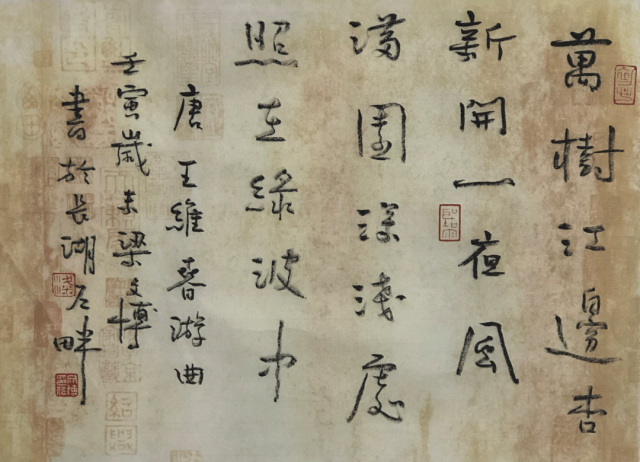 萬樹江邊杏
新開一夜風
滿園深淺處
照在綠波中
唐王維春游曲
壬寅歲末梁文博
書於長湖石畔